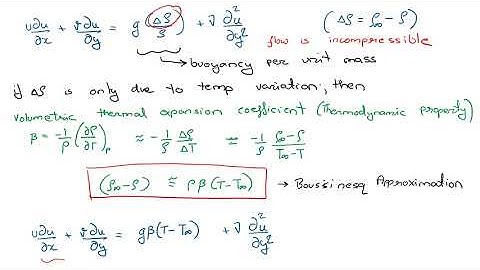 u∂u/∂x + v∂u/∂y = g(Δρ/ρ) + ν ∂²u/∂y² (Δρ = ρ∞ - ρ)
flow is incompressible
→ buoyancy per unit mass
if Δρ is only due to temp variation, then
volumetric thermal expansion coefficient (Thermodynamic property)
β = -1/ρ (∂ρ/∂T)p ≈ -1/ρ Δρ/ΔT = -1/ρ ρ∞-ρ/T∞-T
(ρ∞-ρ) ≅ ρβ(T-T∞) → Boussinesq Approximation
u∂u/∂x + v∂u/∂y = gβ(T-T∞) + ν ∂²u/∂y²